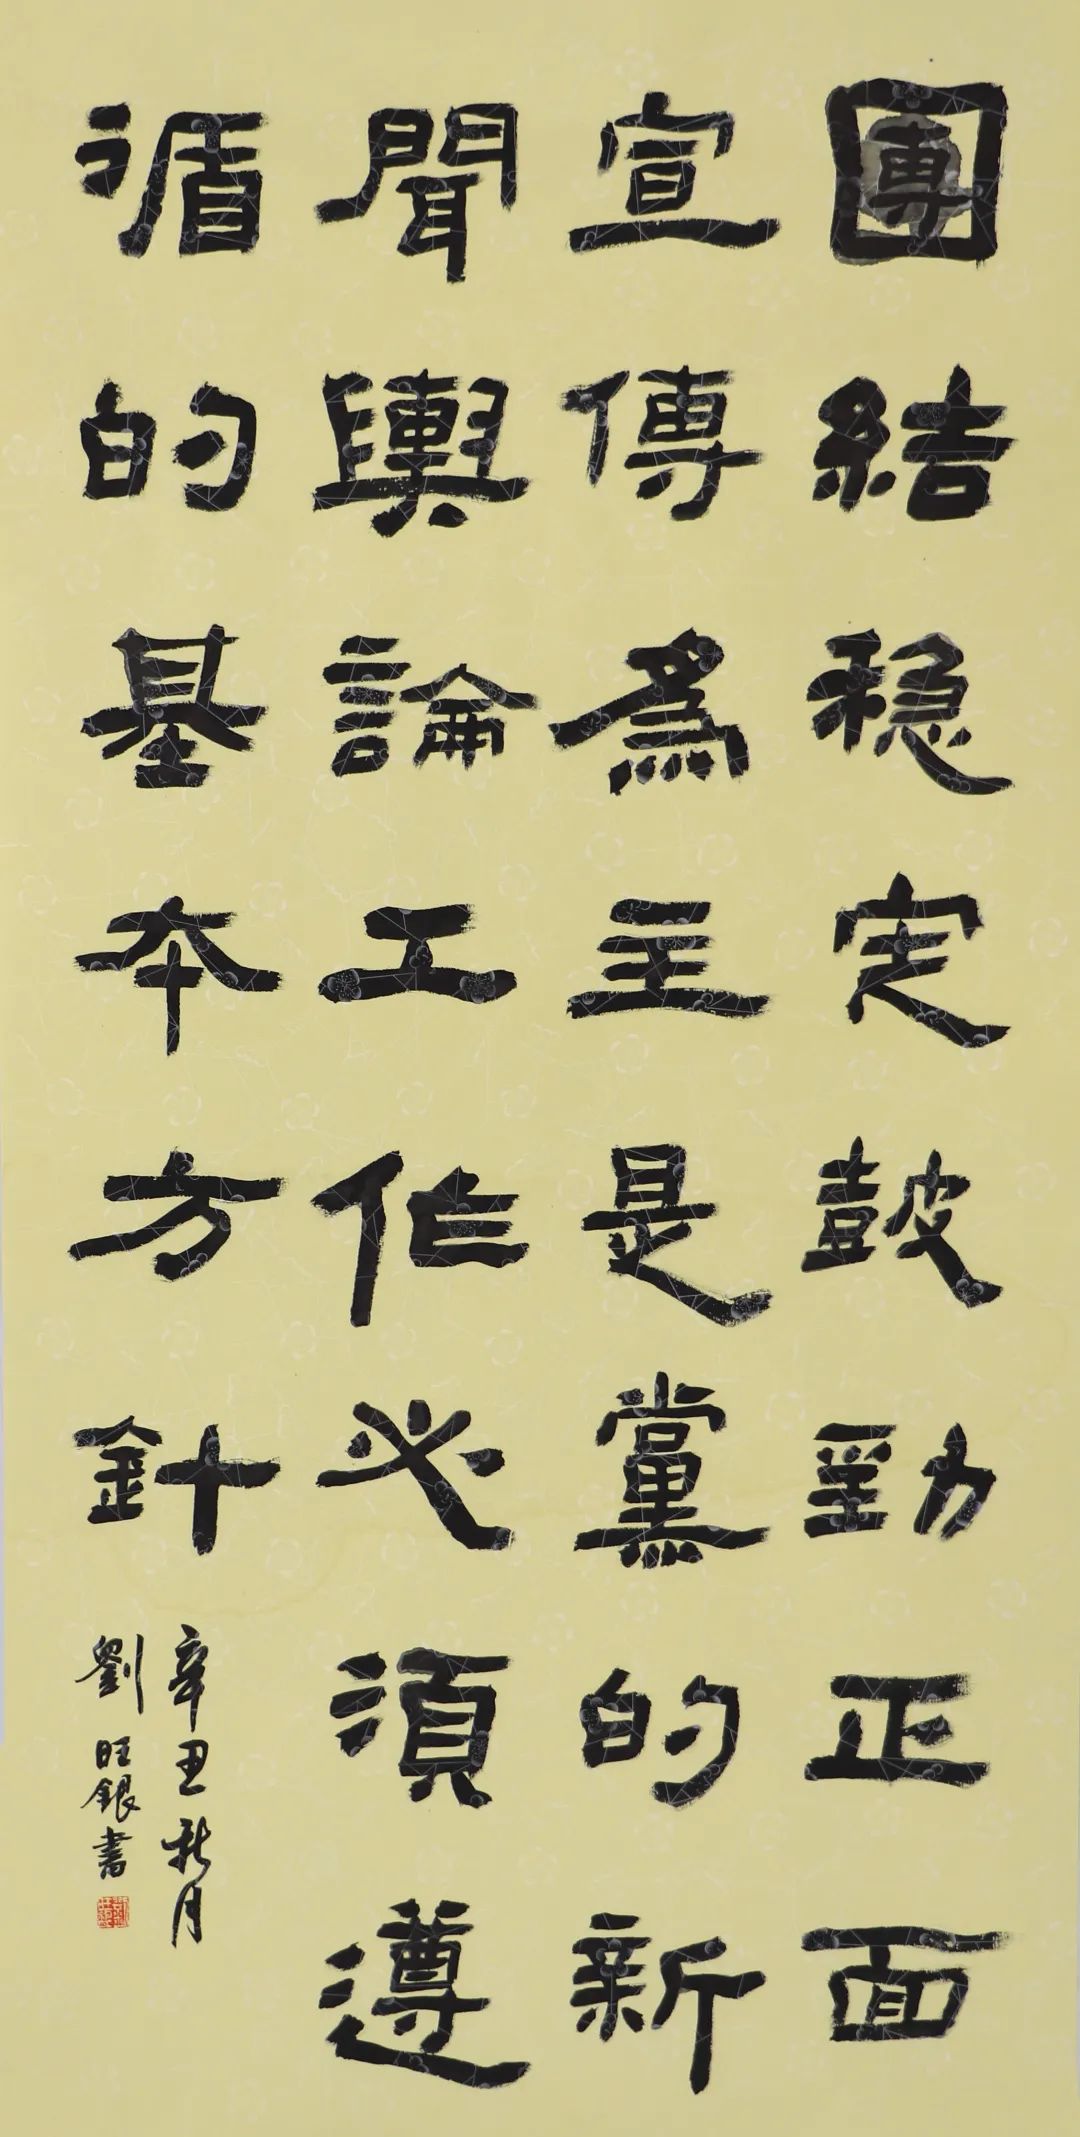 團結穩定鼓勁正面
宣傳為主是黨的新
聞輿論工作必須遵
循的基本方針
辛丑秋月
劉旺銀書